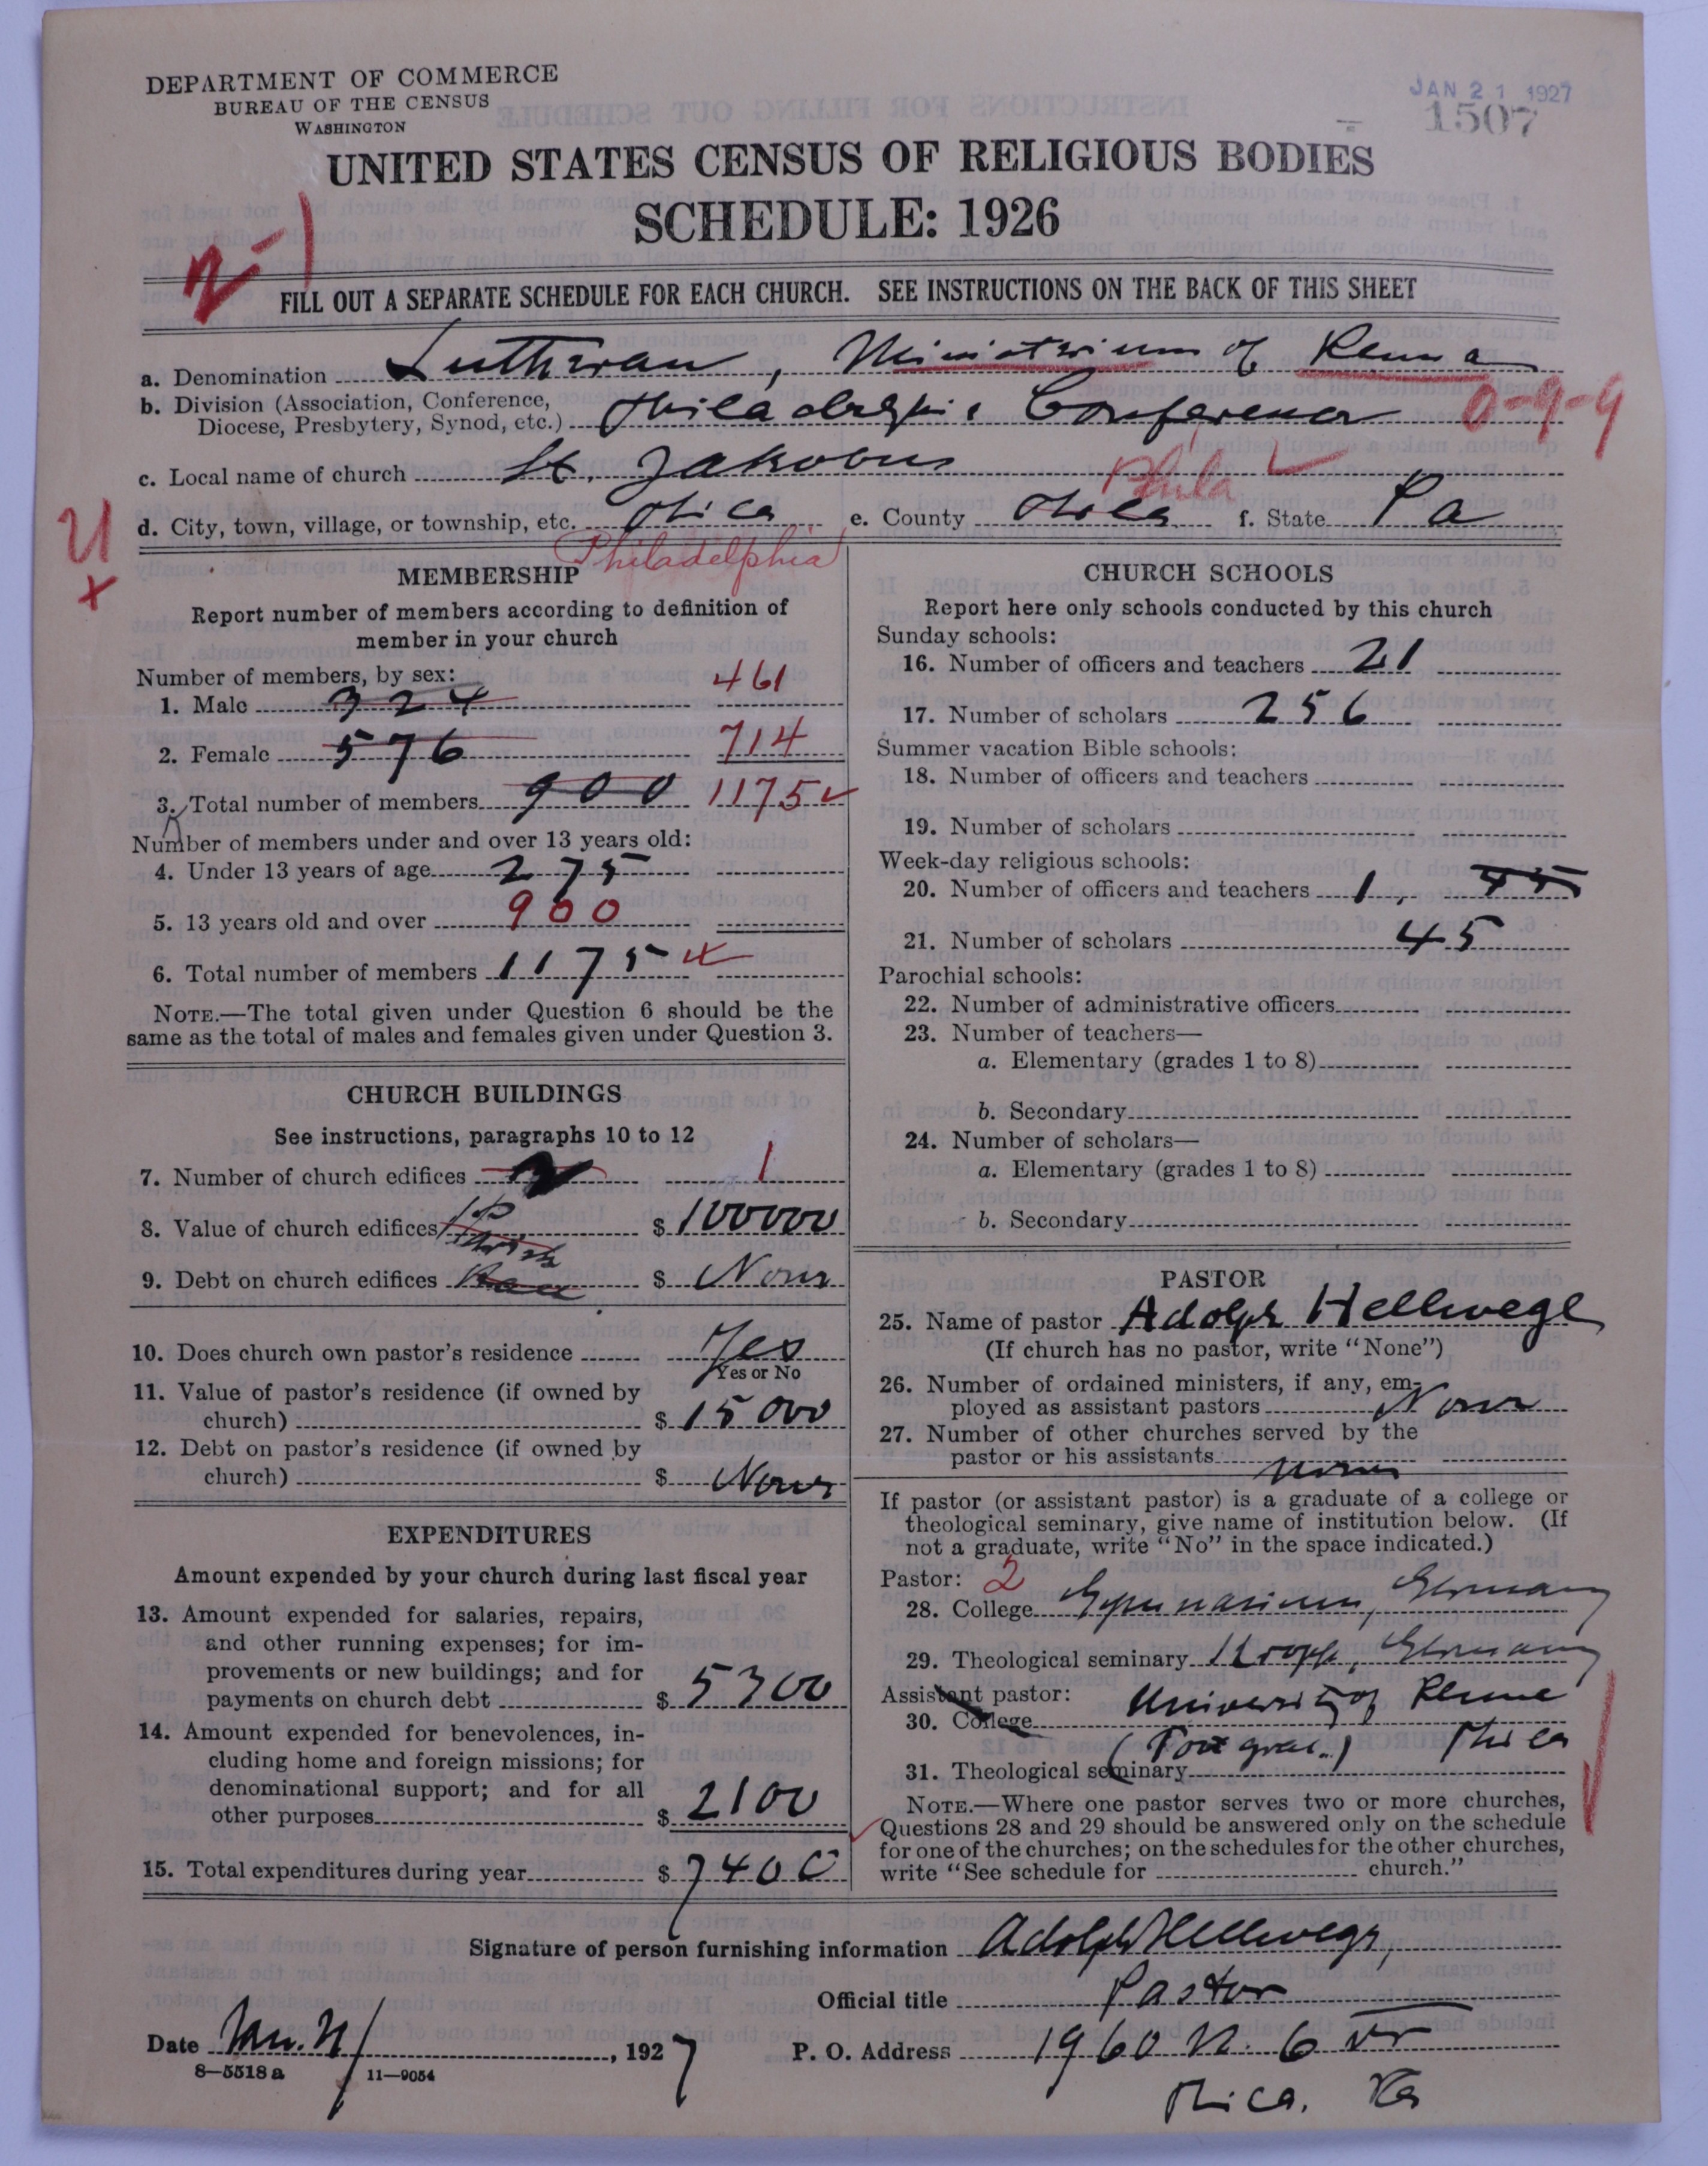 DEPARTMENT OF COMMERCE
BUREAU OF THE CENSUS
WASHINGTON
JAN 21 1927
1507
UNITED STATES CENSUS OF RELIGIOUS BODIES
SCHEDULE: 1926
2-1
FILL OUT A SEPARATE SCHEDULE FOR EACH CHURCH. SEE INSTRUCTIONS ON THE BACK OF THIS SHEET
a. Denomination Lutheran, Ministerium of Penna
b. Division (Association, Conference, Diocese, Presbytery, Synod, etc.) Philadelphia Conference 0-9-9
c. Local name of church St. Jakobus
Phila
d. City, town, village, or township, etc. Phila e. County Phila f. State Pa
Philadelphia
U
x
MEMBERSHIP
Report number of members according to definition of
member in your church
Number of members, by sex:
1. Male 324 461
2. Female 576 714
3. Total number of members 900 1175
Number of members under and over 13 years old:
4. Under 13 years of age 275
5. 13 years old and over 900
6. Total number of members 1175
NOTE.—The total given under Question 6 should be the
same as the total of males and females given under Question 3.
CHURCH BUILDINGS
See instructions, paragraphs 10 to 12
7. Number of church edifices 2 1
8. Value of church edifices $ 100000
Parish
9. Debt on church edifices $ None
10. Does church own pastor's residence Yes
Yes or No
11. Value of pastor's residence (if owned by
church) $ 15000
12. Debt on pastor's residence (if owned by
church) $ None
EXPENDITURES
Amount expended by your church during last fiscal year
13. Amount expended for salaries, repairs,
and other running expenses; for im-
provements or new buildings; and for
payments on church debt $ 5300
14. Amount expended for benevolences, in-
cluding home and foreign missions; for
denominational support; and for all
other purposes $ 2100
15. Total expenditures during year $ 7400
CHURCH SCHOOLS
Report here only schools conducted by this church
Sunday schools:
16. Number of officers and teachers 21
17. Number of scholars 256
Summer vacation Bible schools:
18. Number of officers and teachers
19. Number of scholars
Week-day religious schools:
20. Number of officers and teachers 1, 45
21. Number of scholars 45
Parochial schools:
22. Number of administrative officers
23. Number of teachers—
a. Elementary (grades 1 to 8)
b. Secondary
24. Number of scholars—
a. Elementary (grades 1 to 8)
b. Secondary
PASTOR
25. Name of pastor Adolph Hellwege
(If church has no pastor, write "None")
26. Number of ordained ministers, if any, em-
ployed as assistant pastors None
27. Number of other churches served by the
pastor or his assistants None
If pastor (or assistant pastor) is a graduate of a college or
theological seminary, give name of institution below. (If
not a graduate, write "No" in the space indicated.)
Pastor: 2
28. College Gymnasium, Germany
29. Theological seminary Kropp, Germany
Assistant pastor:
30. College University of Penna
(Post grad.) Phila
31. Theological seminary
NOTE.—Where one pastor serves two or more churches,
Questions 28 and 29 should be answered only on the schedule
for one of the churches; on the schedules for the other churches,
write "See schedule for church."
Signature of person furnishing information Adolph Hellwege,
Official title Pastor
Date Jan. 21, 1927 P. O. Address 1960 N. 6 Str
Phila. Pa
8—5518 a 11—9054